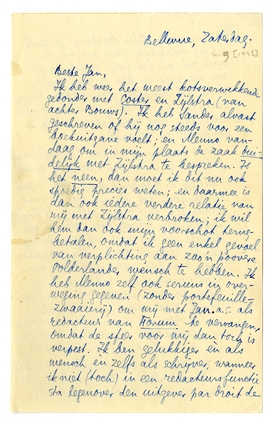 Bellevue, Zaterdag.
9 [1932]
Beste Jan,
Ik heb weer het meest kotsverwekkende
gedonder met Coster en Zijlstra (van
achter Bouws). Ik heb Sander alvast
geschreven of hij nog steeds voor een
boekuitgave voelt; en Menno van-
daag om in mijn plaats de zaak
delijk met Zijlstra te bespreken. Is
het neen, dan moet ik dit nu ook
spoedig precies weten; en daarmee is
dan ook iedere verdere relatie van
mij met Zijlstra verbroken; ik wil
hem dan ook mijn voorschot terug-
betalen, omdat ik geen enkel gevoel
van verplichting aan zoo'n poovere
Polderlandse mensch te hebben. Ik
heb Menno zelf ook serieus in over-
weging gegeven (zonder portefeuille-
zwaaierij) om mij met Jan. a.s. als
redacteur van Forum te vervangen,
omdat de sfeer voor mij dan toch is
verpest. Ik ben gelukkiger en als
mensch en zelfs als schrijver, wanneer
ik niet (toch) in een redacteursfunctie
sta tegenover den uitgever par droit de